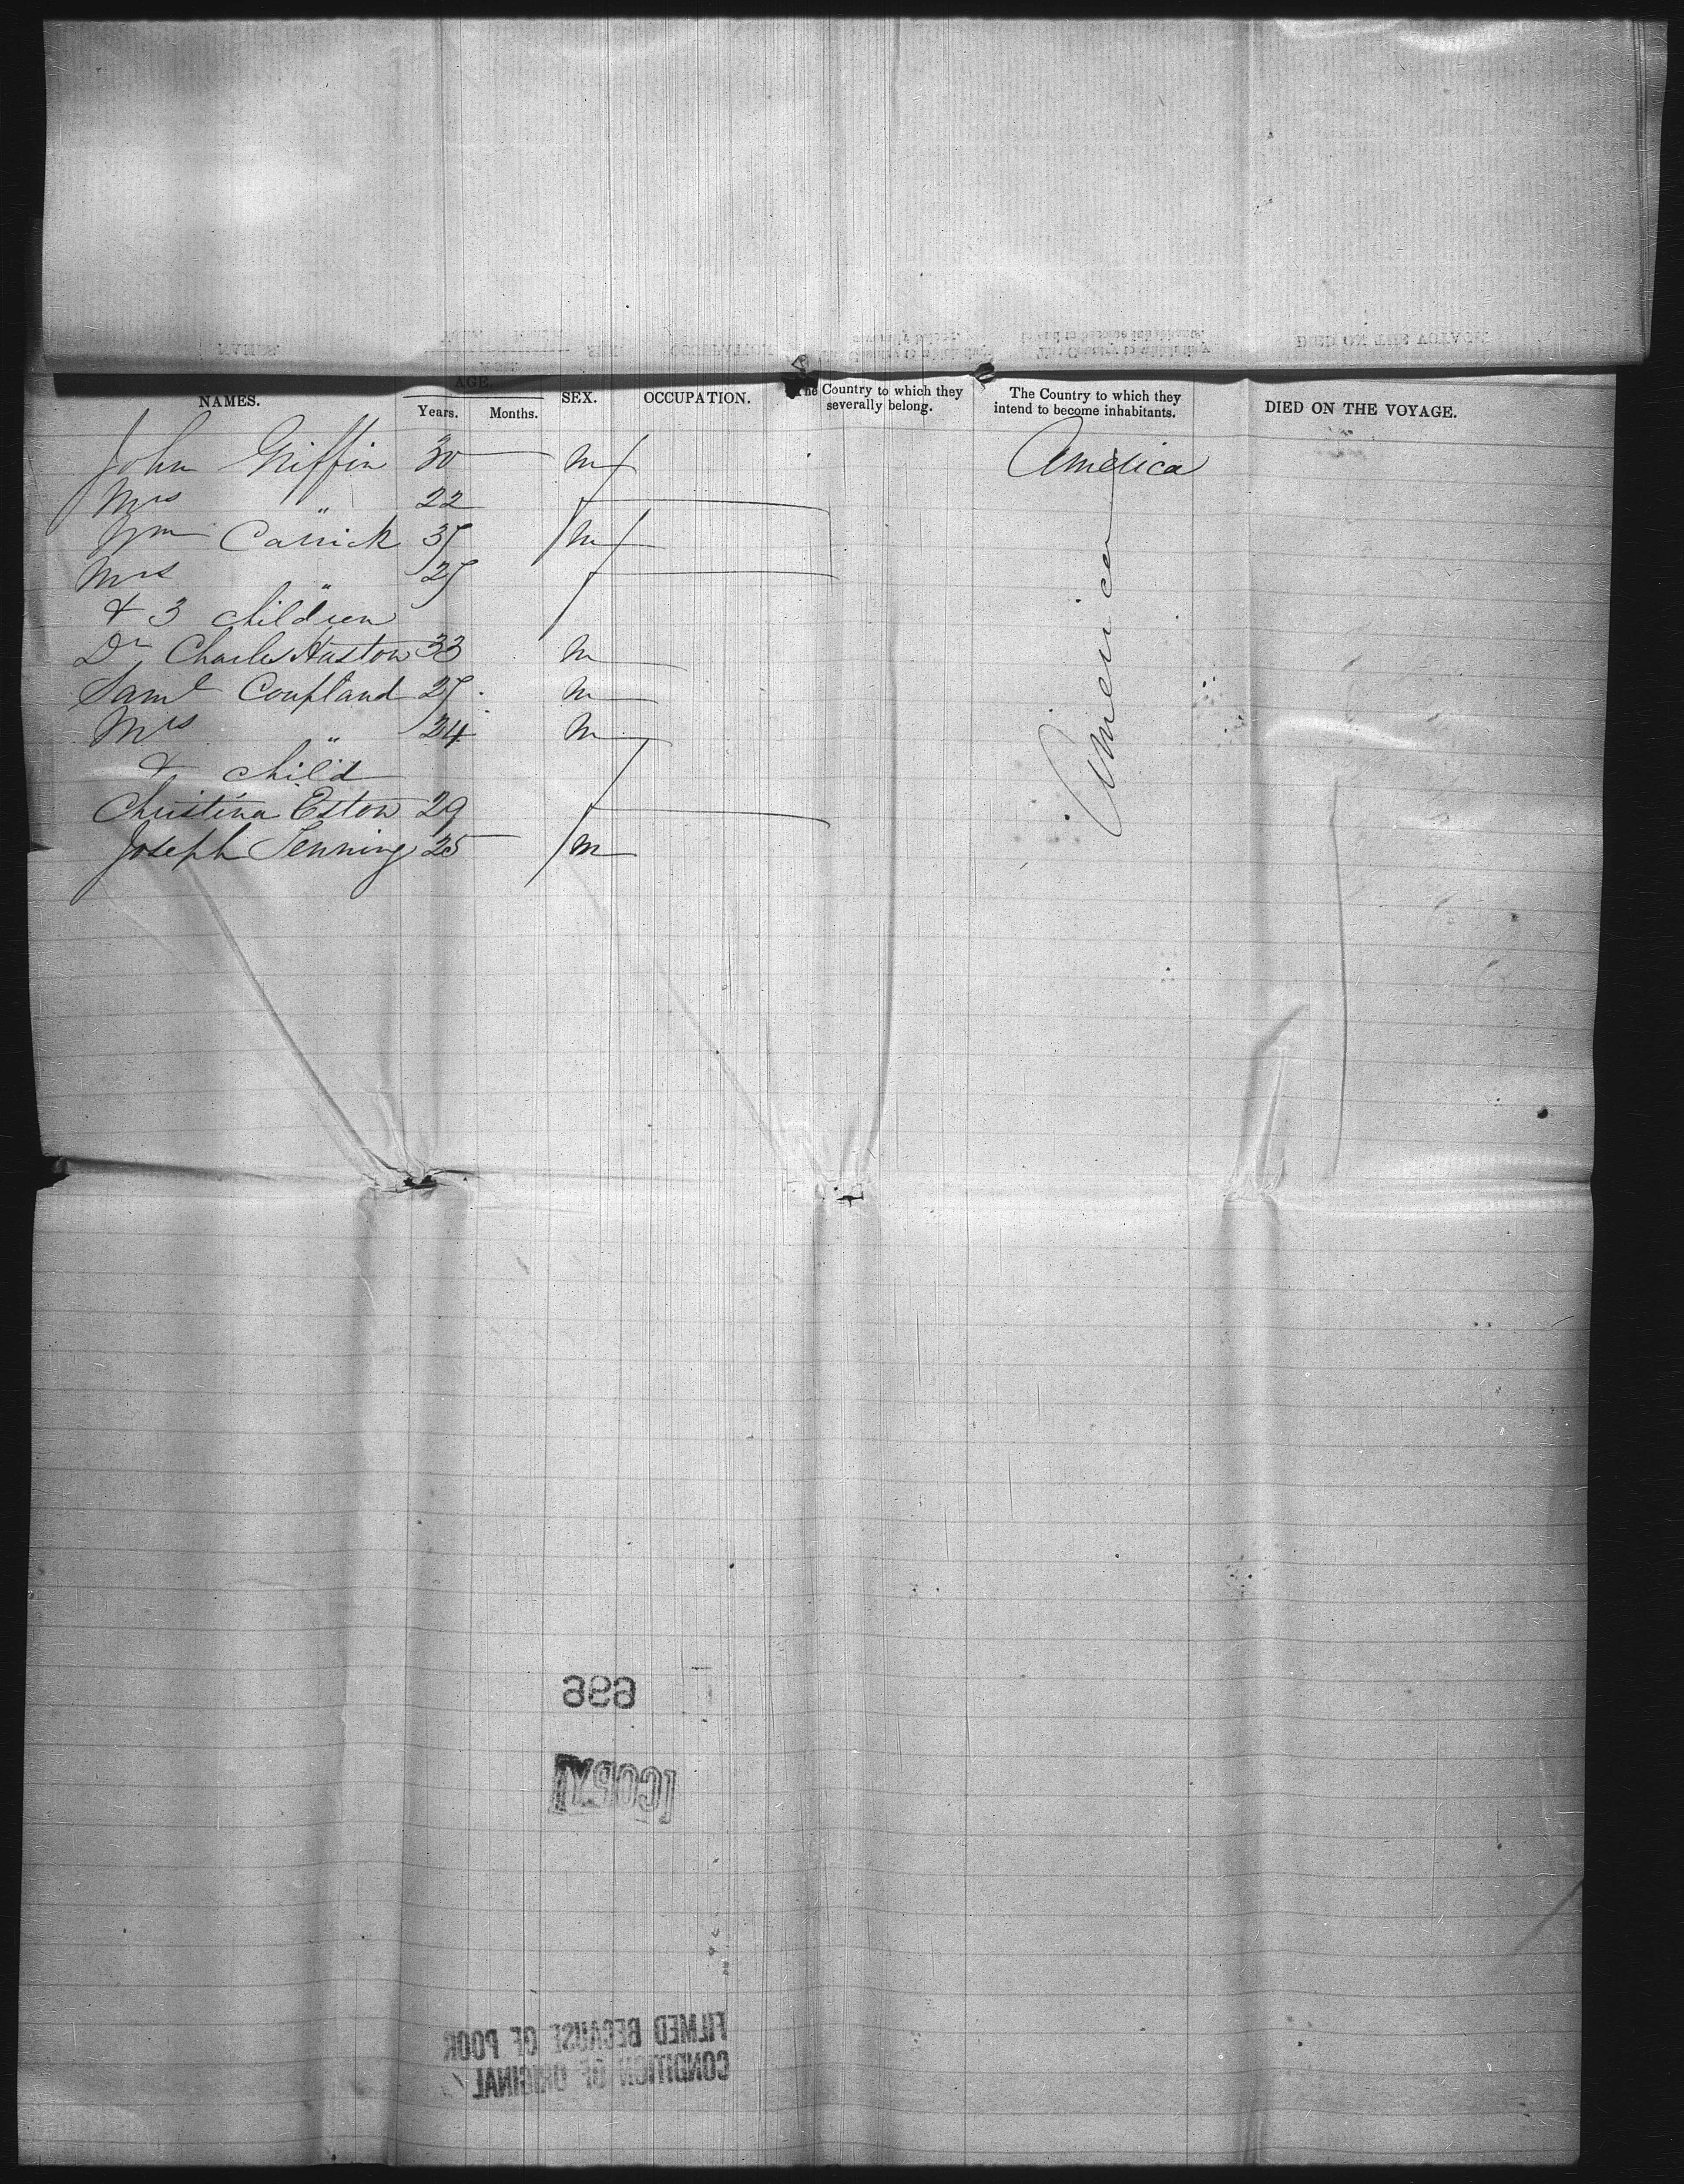 NAMES. AGE. Years. Months. SEX. OCCUPATION. The Country to which they severally belong. The Country to which they intend to become inhabitants. DIED ON THE VOYAGE.
John Griffin 30 M America
Mrs " 22 f
Wm Carrick 35 M
Mrs " 25 f
& 3 children
Dr Charles Haston 33 M
Saml Coupland 25 M
Mrs " 24 M
& child
Christina Eston 29 f
Joseph Jenning 25 M
America
696
FILMED BECAUSE OF POOR
CONDITION OF ORIGINAL